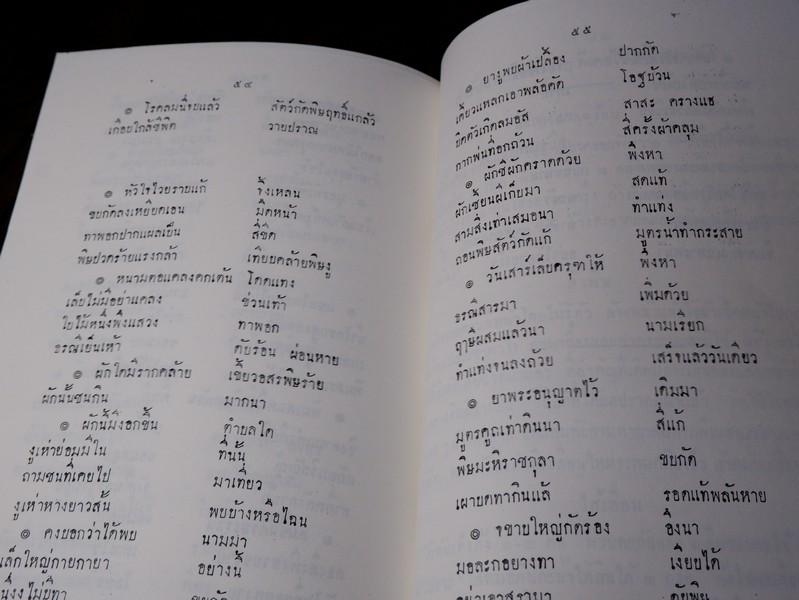 ๕๔
๏ โรคลมนี้ขยแล้ว สัตว์กัดพิษฤทธิ์แกล้ว
เคือยใกล้ชีพิต วายปราณ
๏ หัวใจไวยรายแก้ จิ้งเหลน
ขบกัดลงเหยียดเอน มิดหน้า
ทาพอกปากแผลเย็น สี่ขิด
พิษปวดร้ายแรงกล้า เทียบคล้ายพิษงู
๏ หนามตอแคลงคกเต้น โดดแทง
เสี้ยไม่มีอย่าแคลง ช่วนเท้า
ใบไม้หนึ่งพึงแสวง ทาพอก
ธรณีเย็นเห้า ดับร้อน ผ่อนหาย
๏ ผักใดมีรากคล้าย เขี้ยวอสรพิษร้าย
ผักนั้นชนกิน มากนา
๏ ผักนี้มีงอกขึ้น ตำบลใด
งูเห่าย่อมมีใน ที่นั้น
ถามชนที่เคยไป มาเที่ยว
งูเห่าหางยาวสั้น พบบ้างหรือไฉน
๏ คงบอกว่าได้พบ นามมา
เล็กใหญ่กายกายา อย่างนี้
๕๕
๏ ยางูพยผ้าเปลือง ปากกัด
เคี้ยวแหลกเอาพลอัคคัด โอฐบ้วน
ปิดตัวเกิดลมอัส สาสะ ครางแฮ
กากพ่นที่อกถ้วน สี่ครั้งผ้าคลุม
๏ ผักชีผักคราดด้วย พึงหา
ผักเชี้ยนผีเก็บมา สดแท้
สามสิ่งเท่าเสมอนา ทำแท่ง
ถอนพิษสัตว์กัดแก้ มูตรน้ำทำกระสาย
๏ วันเสาร์เลี้ยครุฑให้ พึงหา
ธรณีสารมา เพิ่มด้วย
ฤๅษีผสมแล้วนา นามเรียก
ทำแท่งจนลงถ้วย เสร็จแล้ววันเดียว
๏ ยาพระอนุญาตไว้ เดิมมา
มูตรคูถเถ้าดินนา สี่แก้
พิษมะหิราชกุลา ขบกัด
เผายดทากินแล้ รอดแท้พลันหาย
๏ จขายใหญ่กัดร้อง อึงนา
มอละกอยางทา เงียบได้